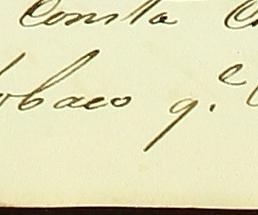 Consta
obaco q.e